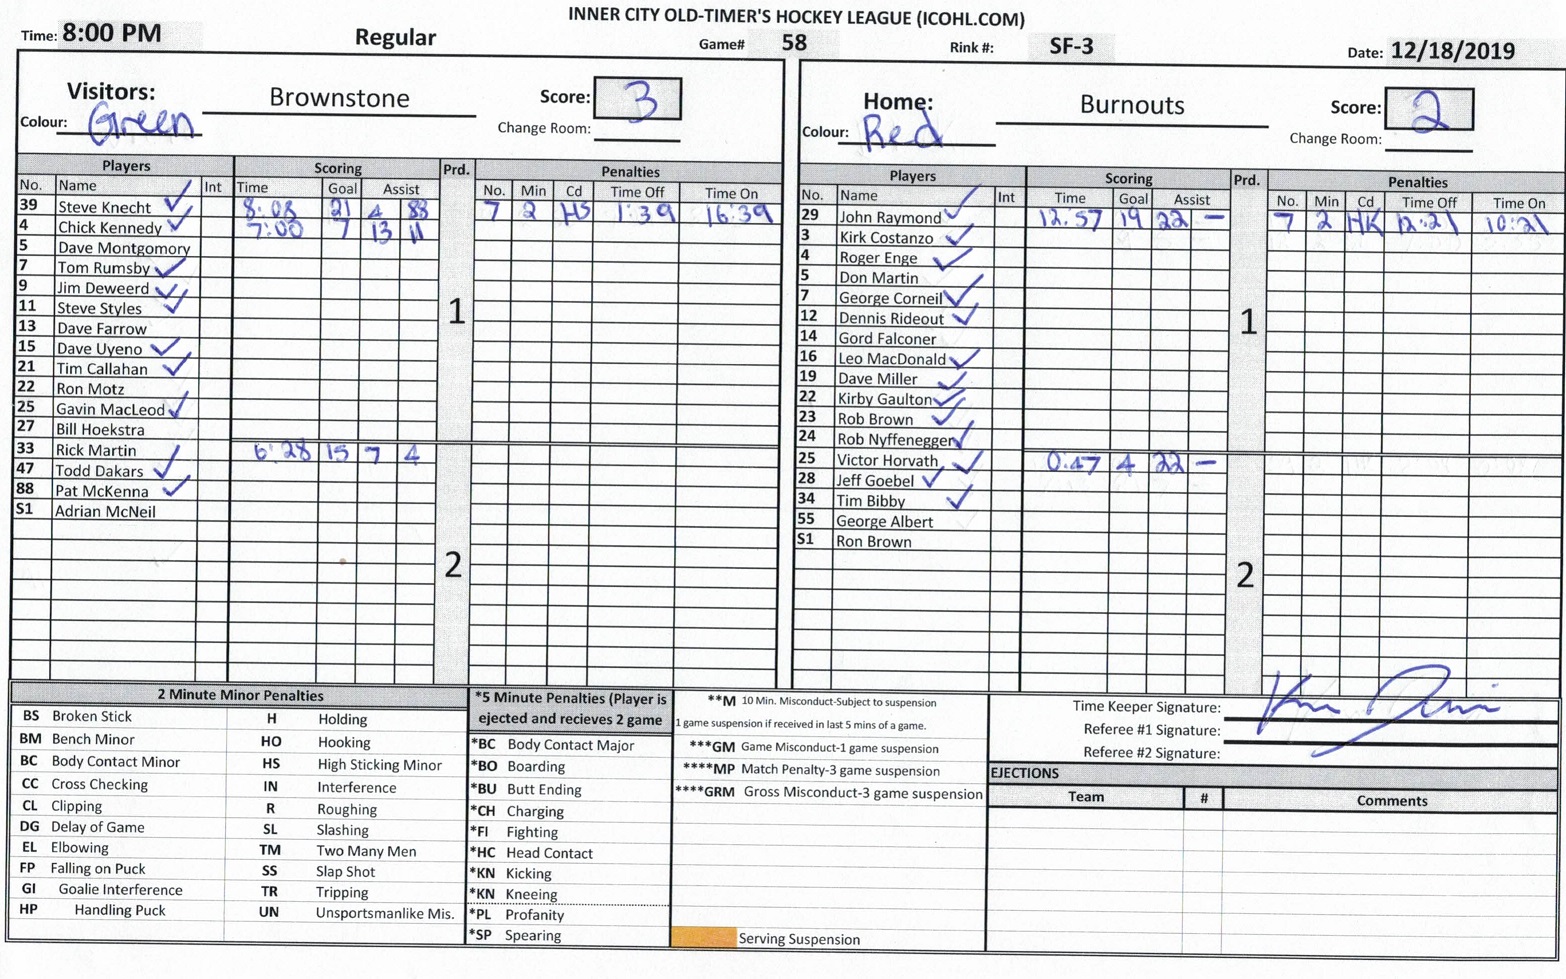 INNER CITY OLD-TIMER'S HOCKEY LEAGUE (ICOHL.COM)
Time: 8:00 PM Regular Game# 58 Rink #: SF-3 Date: 12/18/2019
Visitors: Brownstone Score: 3
Colour: Green Change Room:
Players Scoring Prd. Penalties
No. Name Int Time Goal Assist No. Min Cd Time Off Time On
39 Steve Knecht ✓ 8:08 21 4 88 7 2 HS 1:39 16:39
4 Chick Kennedy ✓ 7:00 7 13 11
5 Dave Montgomory
7 Tom Rumsby ✓
9 Jim Deweerd ✓
11 Steve Styles ✓ 1
13 Dave Farrow
15 Dave Uyeno ✓
21 Tim Callahan ✓
22 Ron Motz
25 Gavin MacLeod ✓
27 Bill Hoekstra
33 Rick Martin 6:28 15 7 4
47 Todd Dakars ✓
88 Pat McKenna ✓
S1 Adrian McNeil
2
Home: Burnouts Score: 2
Colour: Red Change Room:
Players Scoring Prd. Penalties
No. Name Int Time Goal Assist No. Min Cd Time Off Time On
29 John Raymond ✓ 12:57 19 22 — 7 2 HK 12:21 10:21
3 Kirk Costanzo ✓
4 Roger Enge ✓
5 Don Martin
7 George Corneil ✓
12 Dennis Rideout ✓ 1
14 Gord Falconer
16 Leo MacDonald ✓
19 Dave Miller ✓
22 Kirby Gaulton ✓
23 Rob Brown ✓
24 Rob Nyffenegger ✓
25 Victor Horvath ✓ 0:47 4 22 —
28 Jeff Goebel ✓
34 Tim Bibby ✓
55 George Albert
S1 Ron Brown
2
2 Minute Minor Penalties
BS Broken Stick H Holding
BM Bench Minor HO Hooking
BC Body Contact Minor HS High Sticking Minor
CC Cross Checking IN Interference
CL Clipping R Roughing
DG Delay of Game SL Slashing
EL Elbowing TM Two Many Men
FP Falling on Puck SS Slap Shot
GI Goalie Interference TR Tripping
HP Handling Puck UN Unsportsmanlike Mis.
*5 Minute Penalties (Player is
ejected and recieves 2 game
*BC Body Contact Major
*BO Boarding
*BU Butt Ending
*CH Charging
*FI Fighting
*HC Head Contact
*KN Kicking
*KN Kneeing
*PL Profanity
*SP Spearing
**M 10 Min. Misconduct-Subject to suspension
1 game suspension if received in last 5 mins of a game.
***GM Game Misconduct-1 game suspension
****MP Match Penalty-3 game suspension
****GRM Gross Misconduct-3 game suspension
Serving Suspension
Time Keeper Signature:
Referee #1 Signature:
Referee #2 Signature:
EJECTIONS
Team # Comments